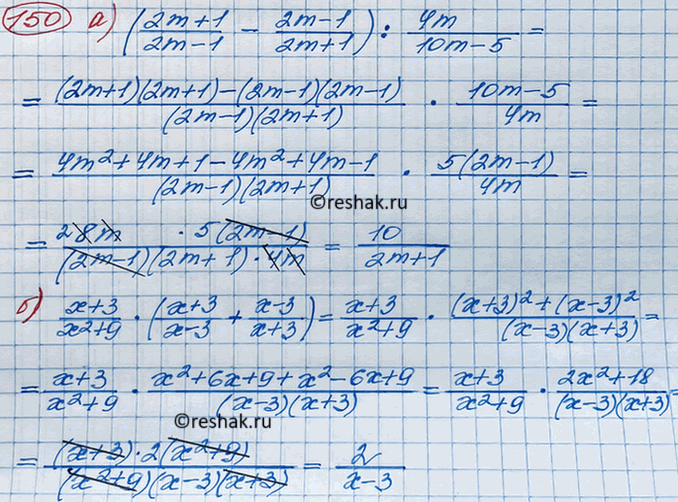 150 а) ((2m+1)/(2m-1) - (2m-1)/(2m+1)) : 4m/(10m-5) =
= ((2m+1)(2m+1)-(2m-1)(2m-1))/((2m-1)(2m+1)) · (10m-5)/4m =
= (4m²+4m+1-4m²+4m-1)/((2m-1)(2m+1)) · 5(2m-1)/4m =
©reshak.ru
= (2 8m · 5(2m-1))/((2m-1)(2m+1)·4m) = 10/(2m+1)
б) (x+3)/(x²+9) · ((x+3)/(x-3) + (x-3)/(x+3)) = (x+3)/(x²+9) · ((x+3)²+(x-3)²)/((x-3)(x+3)) =
= (x+3)/(x²+9) · (x²+6x+9+x²-6x+9)/((x-3)(x+3)) = (x+3)/(x²+9) · (2x²+18)/((x-3)(x+3)) =
©reshak.ru
= ((x+3)·2(x²+9))/((x²+9)(x-3)(x+3)) = 2/(x-3)